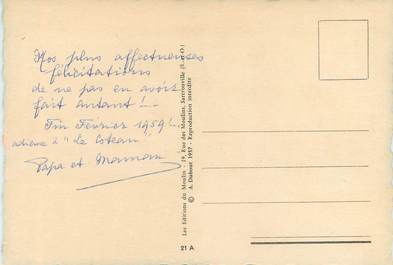 Nos plus affectueuses
félicitations
de ne pas en avoir
fait autant !..
Fin Février 1959 !..
adieux à "Le Coteau"
Papa et Maman
Les Editions du Moulin - 19, Rue des Moulins, Sartrouville (S.-et-O.)
© A. Dubout 1957 - Reproduction interdite
21 A